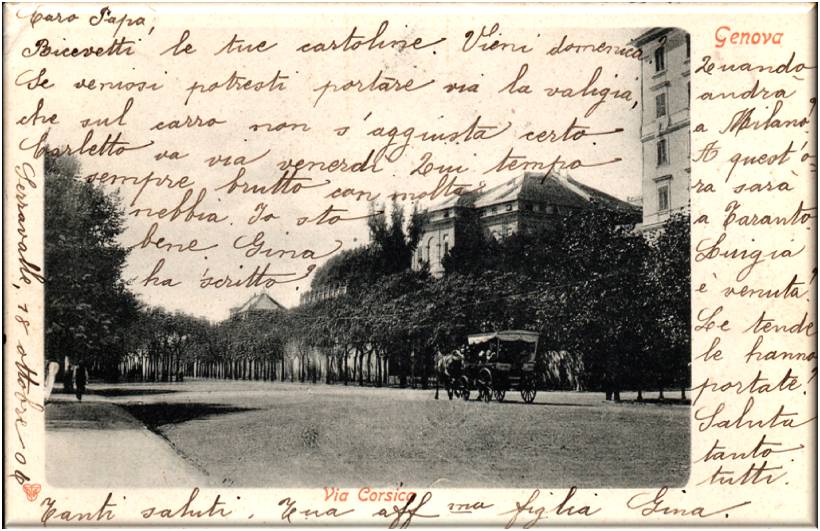 Caro Papà,
Ricevetti le tue cartoline. Vieni domenica?
Se venissi potresti portare via la valigia,
che sul carro non s'aggiusta certo.
Carletto va via venerdì. Qui tempo
sempre brutto con molta
nebbia. Io sto
bene. Gina
ha scritto?
Genova
Quando
andrà
a Milano?
A quest'o-
ra sarà
a Taranto.
Luigia
è venuta?
Le tende
le hanno
portate?
Saluta
tanto
tutti.
Serravalle, 18 ottobre 06
Via Corsica
Tanti saluti. Tua aff ma figlia Gina.